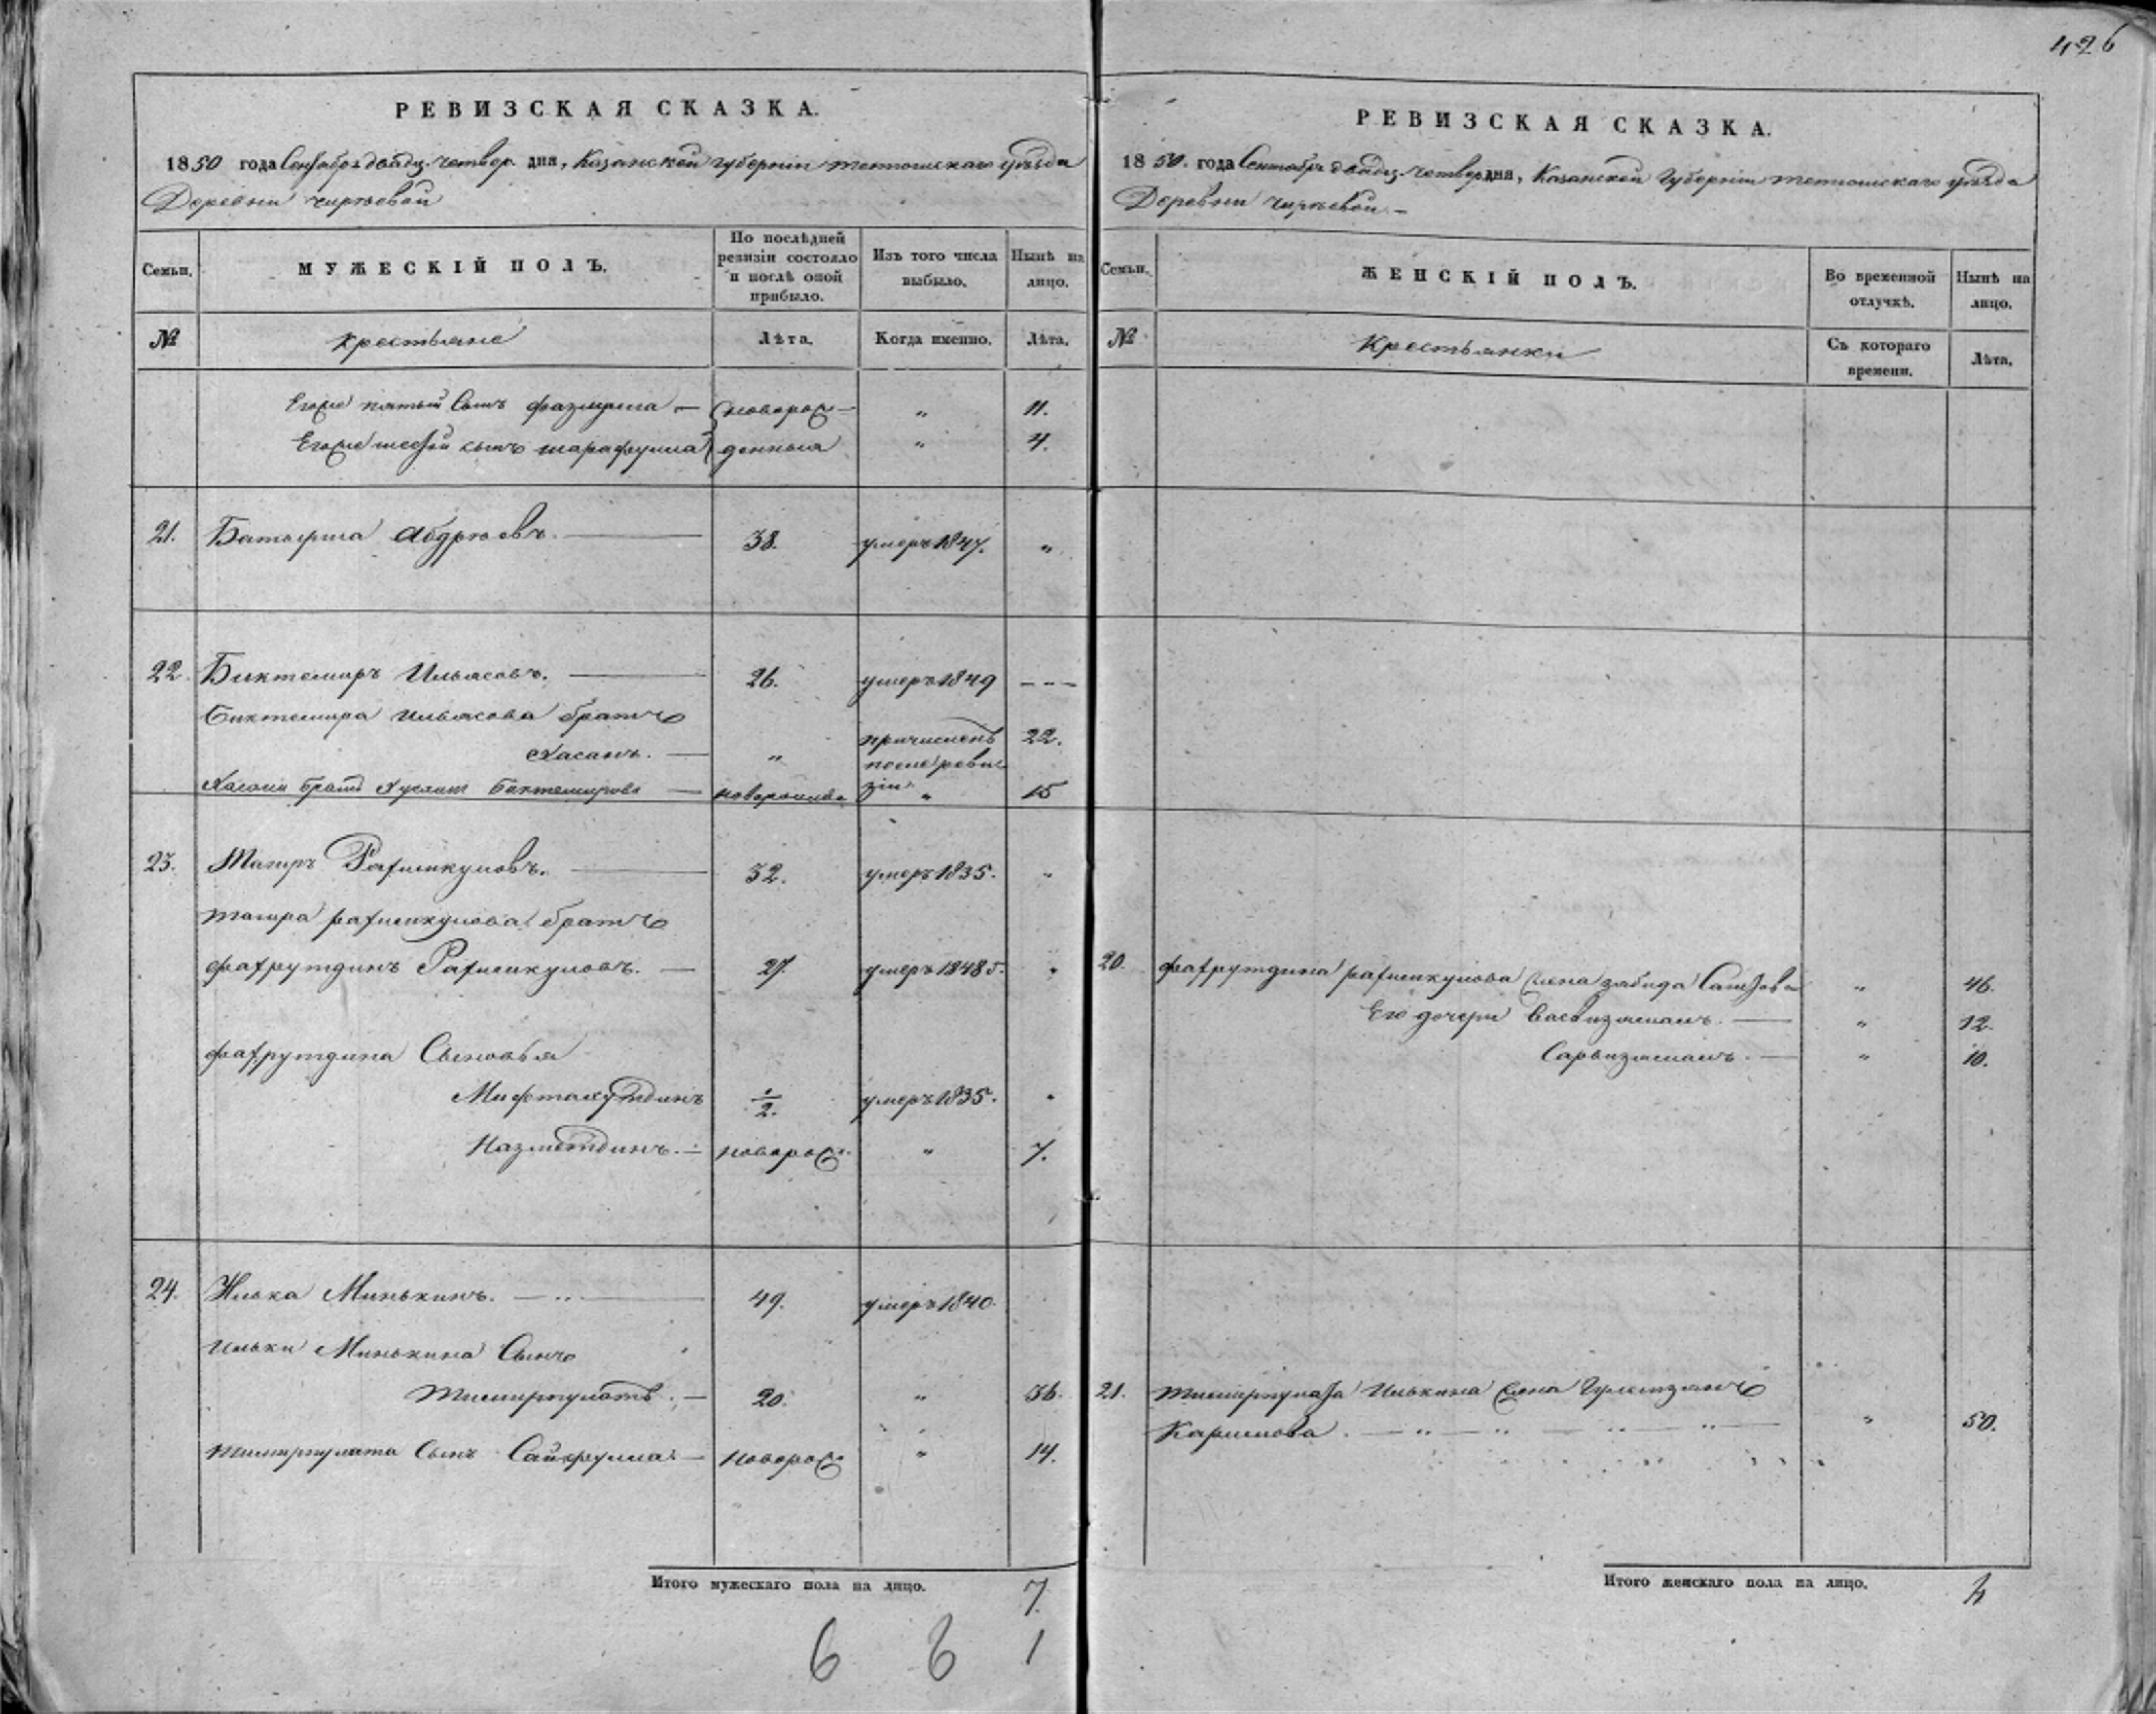 426
РЕВИЗСКАЯ СКАЗКА.
1850 года Сентября двадц. четвер. дня, Казанской губернiи Тетюшскаго уѣзда
Деревни Чирѣевой
Семьи.
МУЖЕСКIЙ ПОЛЪ.
По послѣдней ревизiи состояло и послѣ оной прибыло.
Изъ того числа выбыло.
Нынѣ на лицо.
№ крестьяне Лѣта. Когда именно. Лѣта.
Егоже пятый сынъ — новорож- „ 11.
Егоже шестой сынъ Шарафулла денныя „ 4.
21. Батырша Абдрѣевъ. — 38. умеръ 1847. „
22. Биктемиръ Ильясовъ. — 26. умеръ 1849 – „ –
Биктемира Ильясова братъ
Хасанъ. — „ причисленъ 22.
после реви
зiи
братъ — „ 15
23. Тагиръ Рахманкуловъ. — 32. умеръ 1835. „
Тагира Рахманкулова братъ
Фахрутдинъ Рахманкуловъ. — 27. умеръ 1848 „
Фахрутдина Сыновья
Мифтахутдинъ 1/2. умеръ 1835. „
Назметдинъ. — новорож. „ 7.
24. Илька Минькинъ. — „ — 49. умеръ 1840.
Ильки Минькина Сынъ
Тимирпулатъ. — 20. „ 36.
Тимирпулата Сынъ Сайфулла — новорож. „ 14.
Итого мужескаго пола на лицо. 7.
6 6 1
РЕВИЗСКАЯ СКАЗКА.
1850. года Сентября двадц. четвер дня, Казанской Губернiи Тетюшскаго уѣзда
Деревни Чирѣевой. –
Семьи.
ЖЕНСКIЙ ПОЛЪ.
Во временной отлучкѣ.
Нынѣ на лицо.
№ Крестьянки Съ котораго времени. Лѣта.
20. Фахрутдина Рахманкулова жена Забида „ 46.
Его дочери — „ 12.
— „ 10.
21. Тимирпулата Илькина жена
Каримова. — „ — „ — „ — „ — „ 50.
Итого женскаго пола на лицо. 4